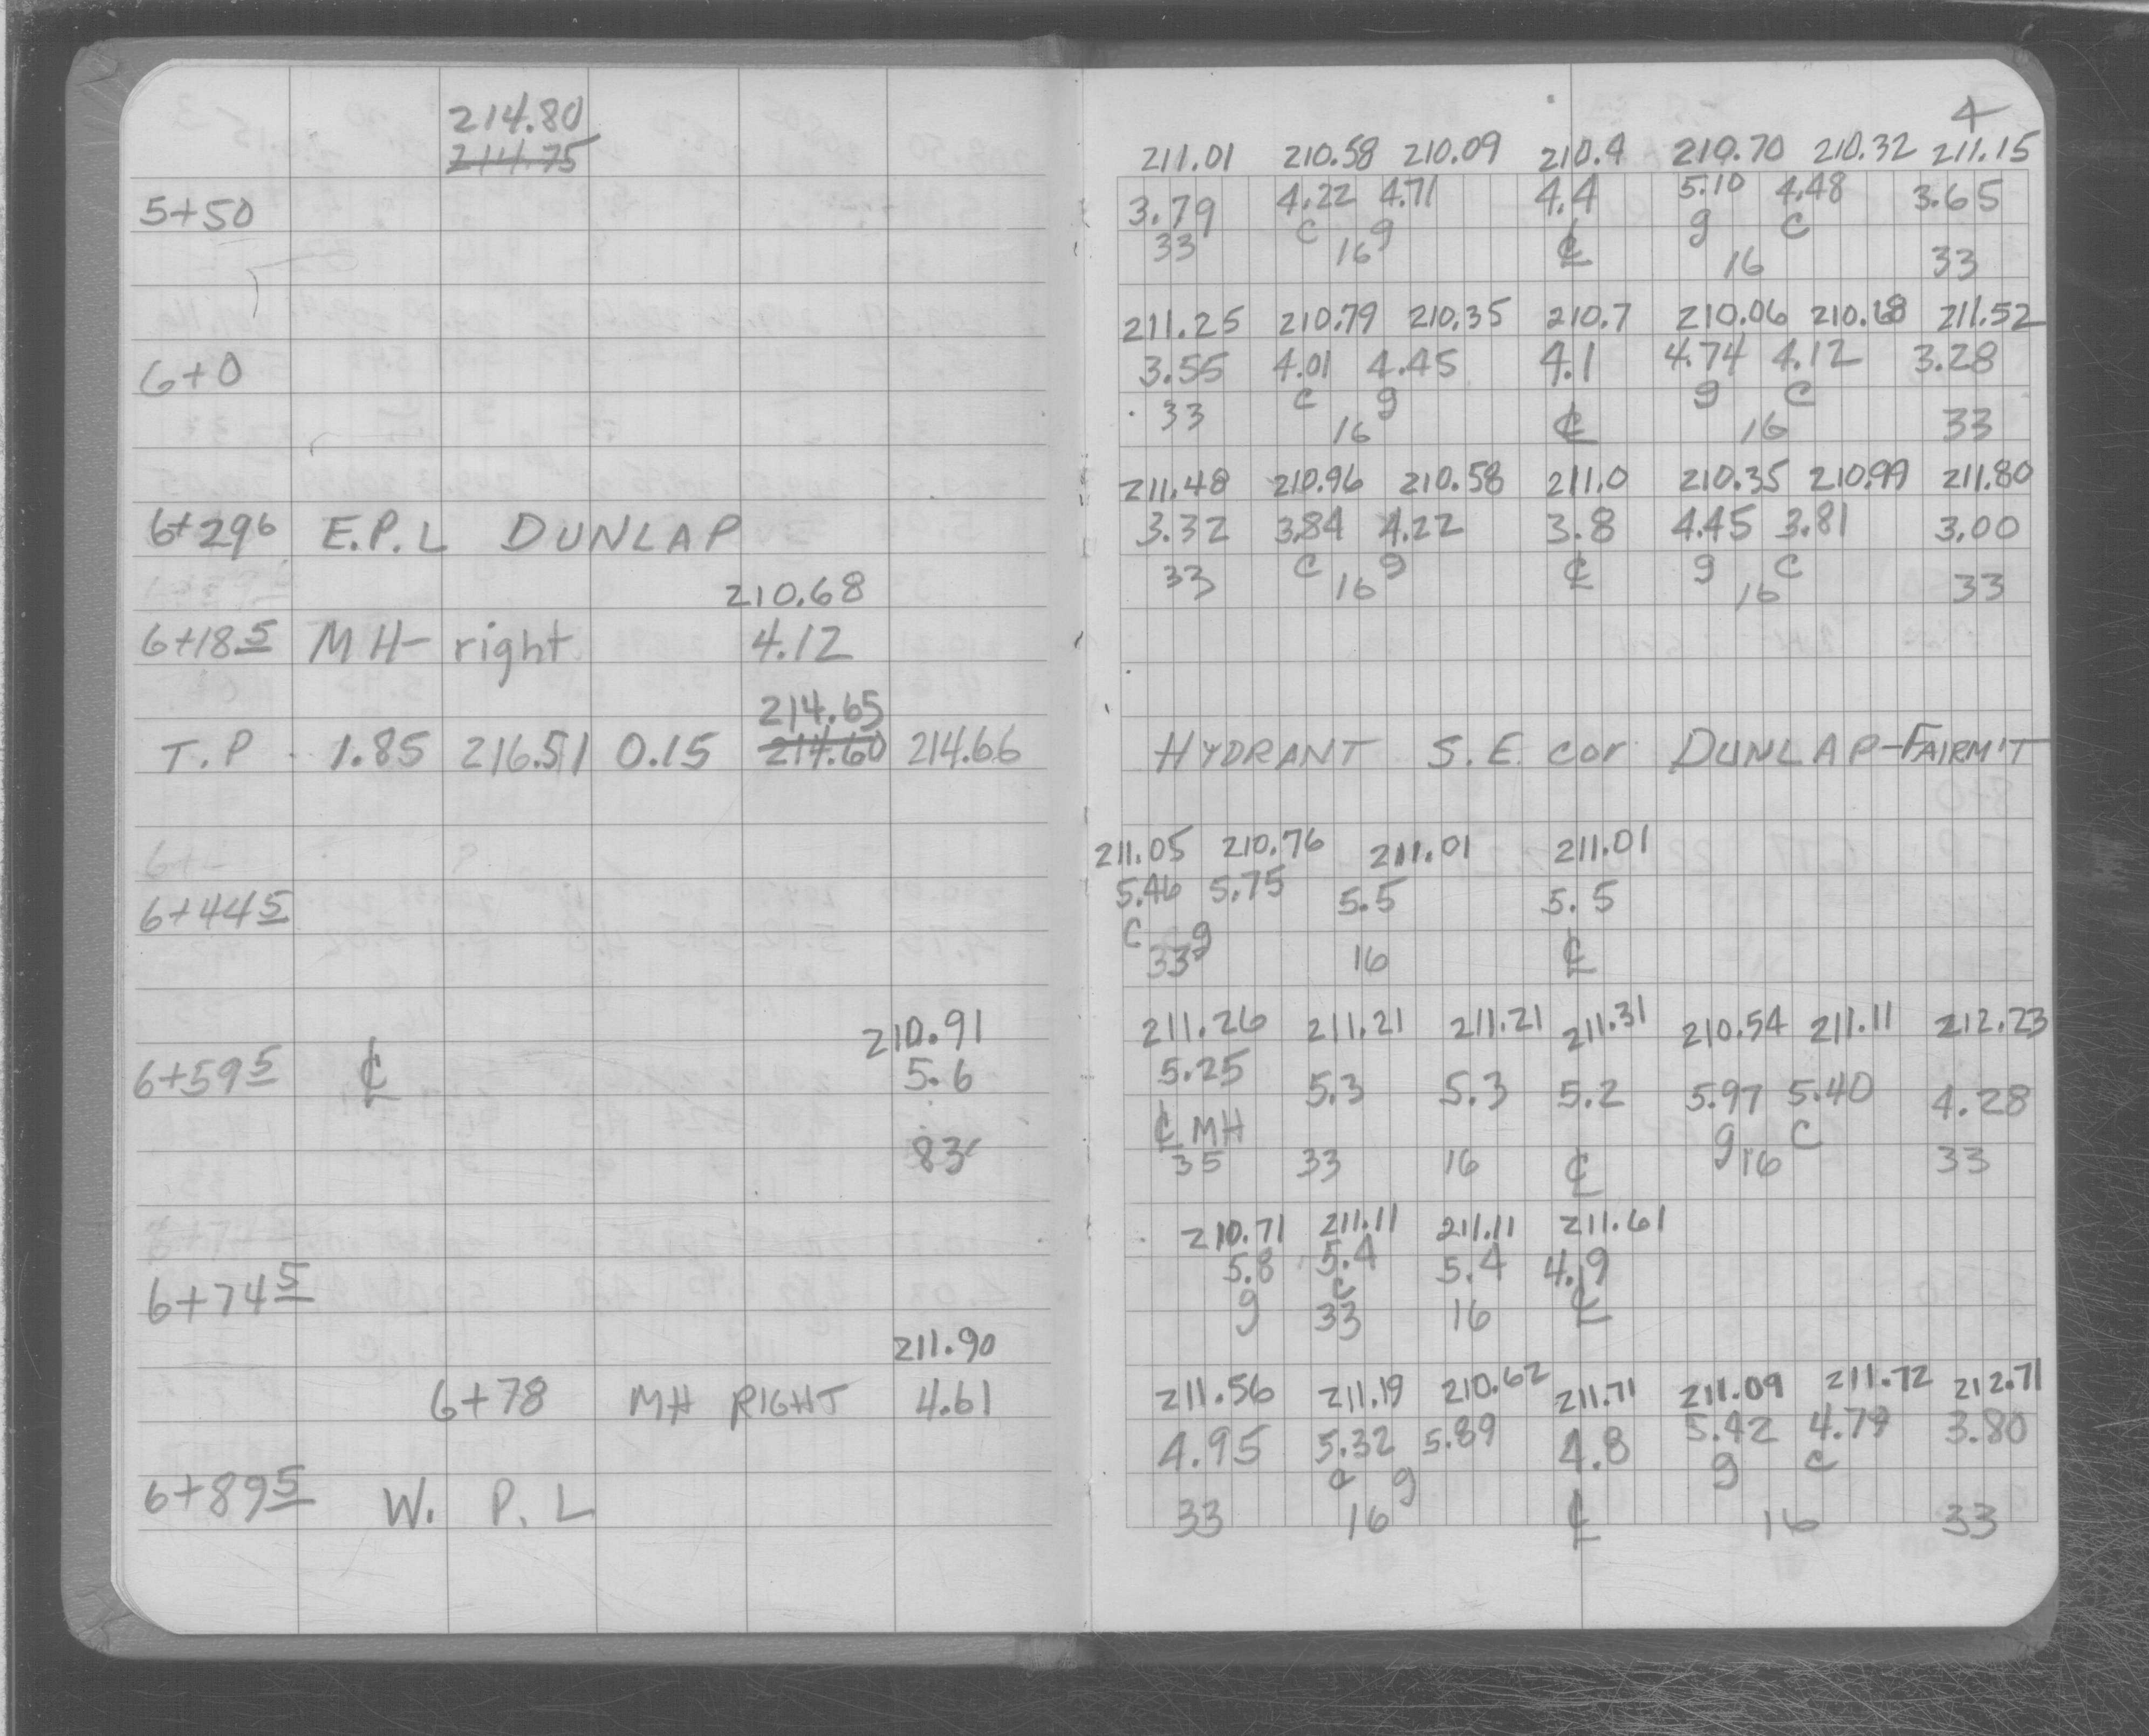 214.80
214.75
5+50
6+0
6+296 E.P.L DUNLAP
210.68
6+185 MH- right 4.12
214.65
T.P. 1.85 216.51 0.15 214.60 214.66
6+445
210.91
6+595 ℄ 5.6
83
6+745
211.90
6+78 MH RIGHT 4.61
6+895 W. P. L
4
211.01 210.58 210.09 210.4 210.70 210.32 211.15
3.79 4.22 4.71 4.4 5.10 4.48 3.65
c g ℄ g c
33 16 16 33
211.25 210.79 210.35 210.7 210.06 210.68 211.52
3.55 4.01 4.45 4.1 4.74 4.12 3.28
c g g c
33 16 ℄ 16 33
211.48 210.96 210.58 211.0 210.35 210.99 211.80
3.32 3.84 4.22 3.8 4.45 3.81 3.00
c g ℄ g c
33 16 16 33
HYDRANT S.E. cor DUNLAP-FAIRM'T
211.05 210.76 211.01 211.01
5.46 5.75 5.5 5.5
c g
33 16 ℄
211.26 211.21 211.21 211.31 210.54 211.11 212.23
5.25 5.3 5.3 5.2 5.97 5.40 4.28
℄ MH g c
35 33 16 ℄ 16 33
210.71 211.11 211.11 211.61
5.8 5.4 5.4 4.9
g c
33 16 ℄
211.56 211.19 210.62 211.71 211.09 211.72 212.71
4.95 5.32 5.89 4.8 5.42 4.79 3.80
c g g c
33 16 ℄ 16 33